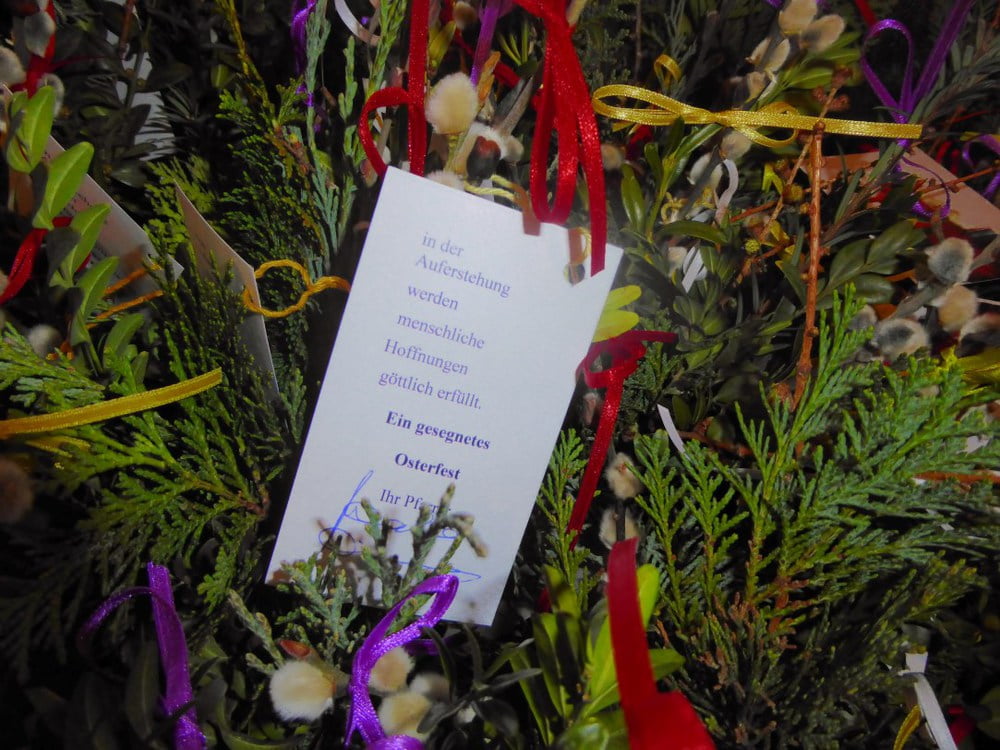 in der
Auferstehung
werden
menschliche
Hoffnungen
göttlich erfüllt.
Ein gesegnetes
Osterfest
Ihr